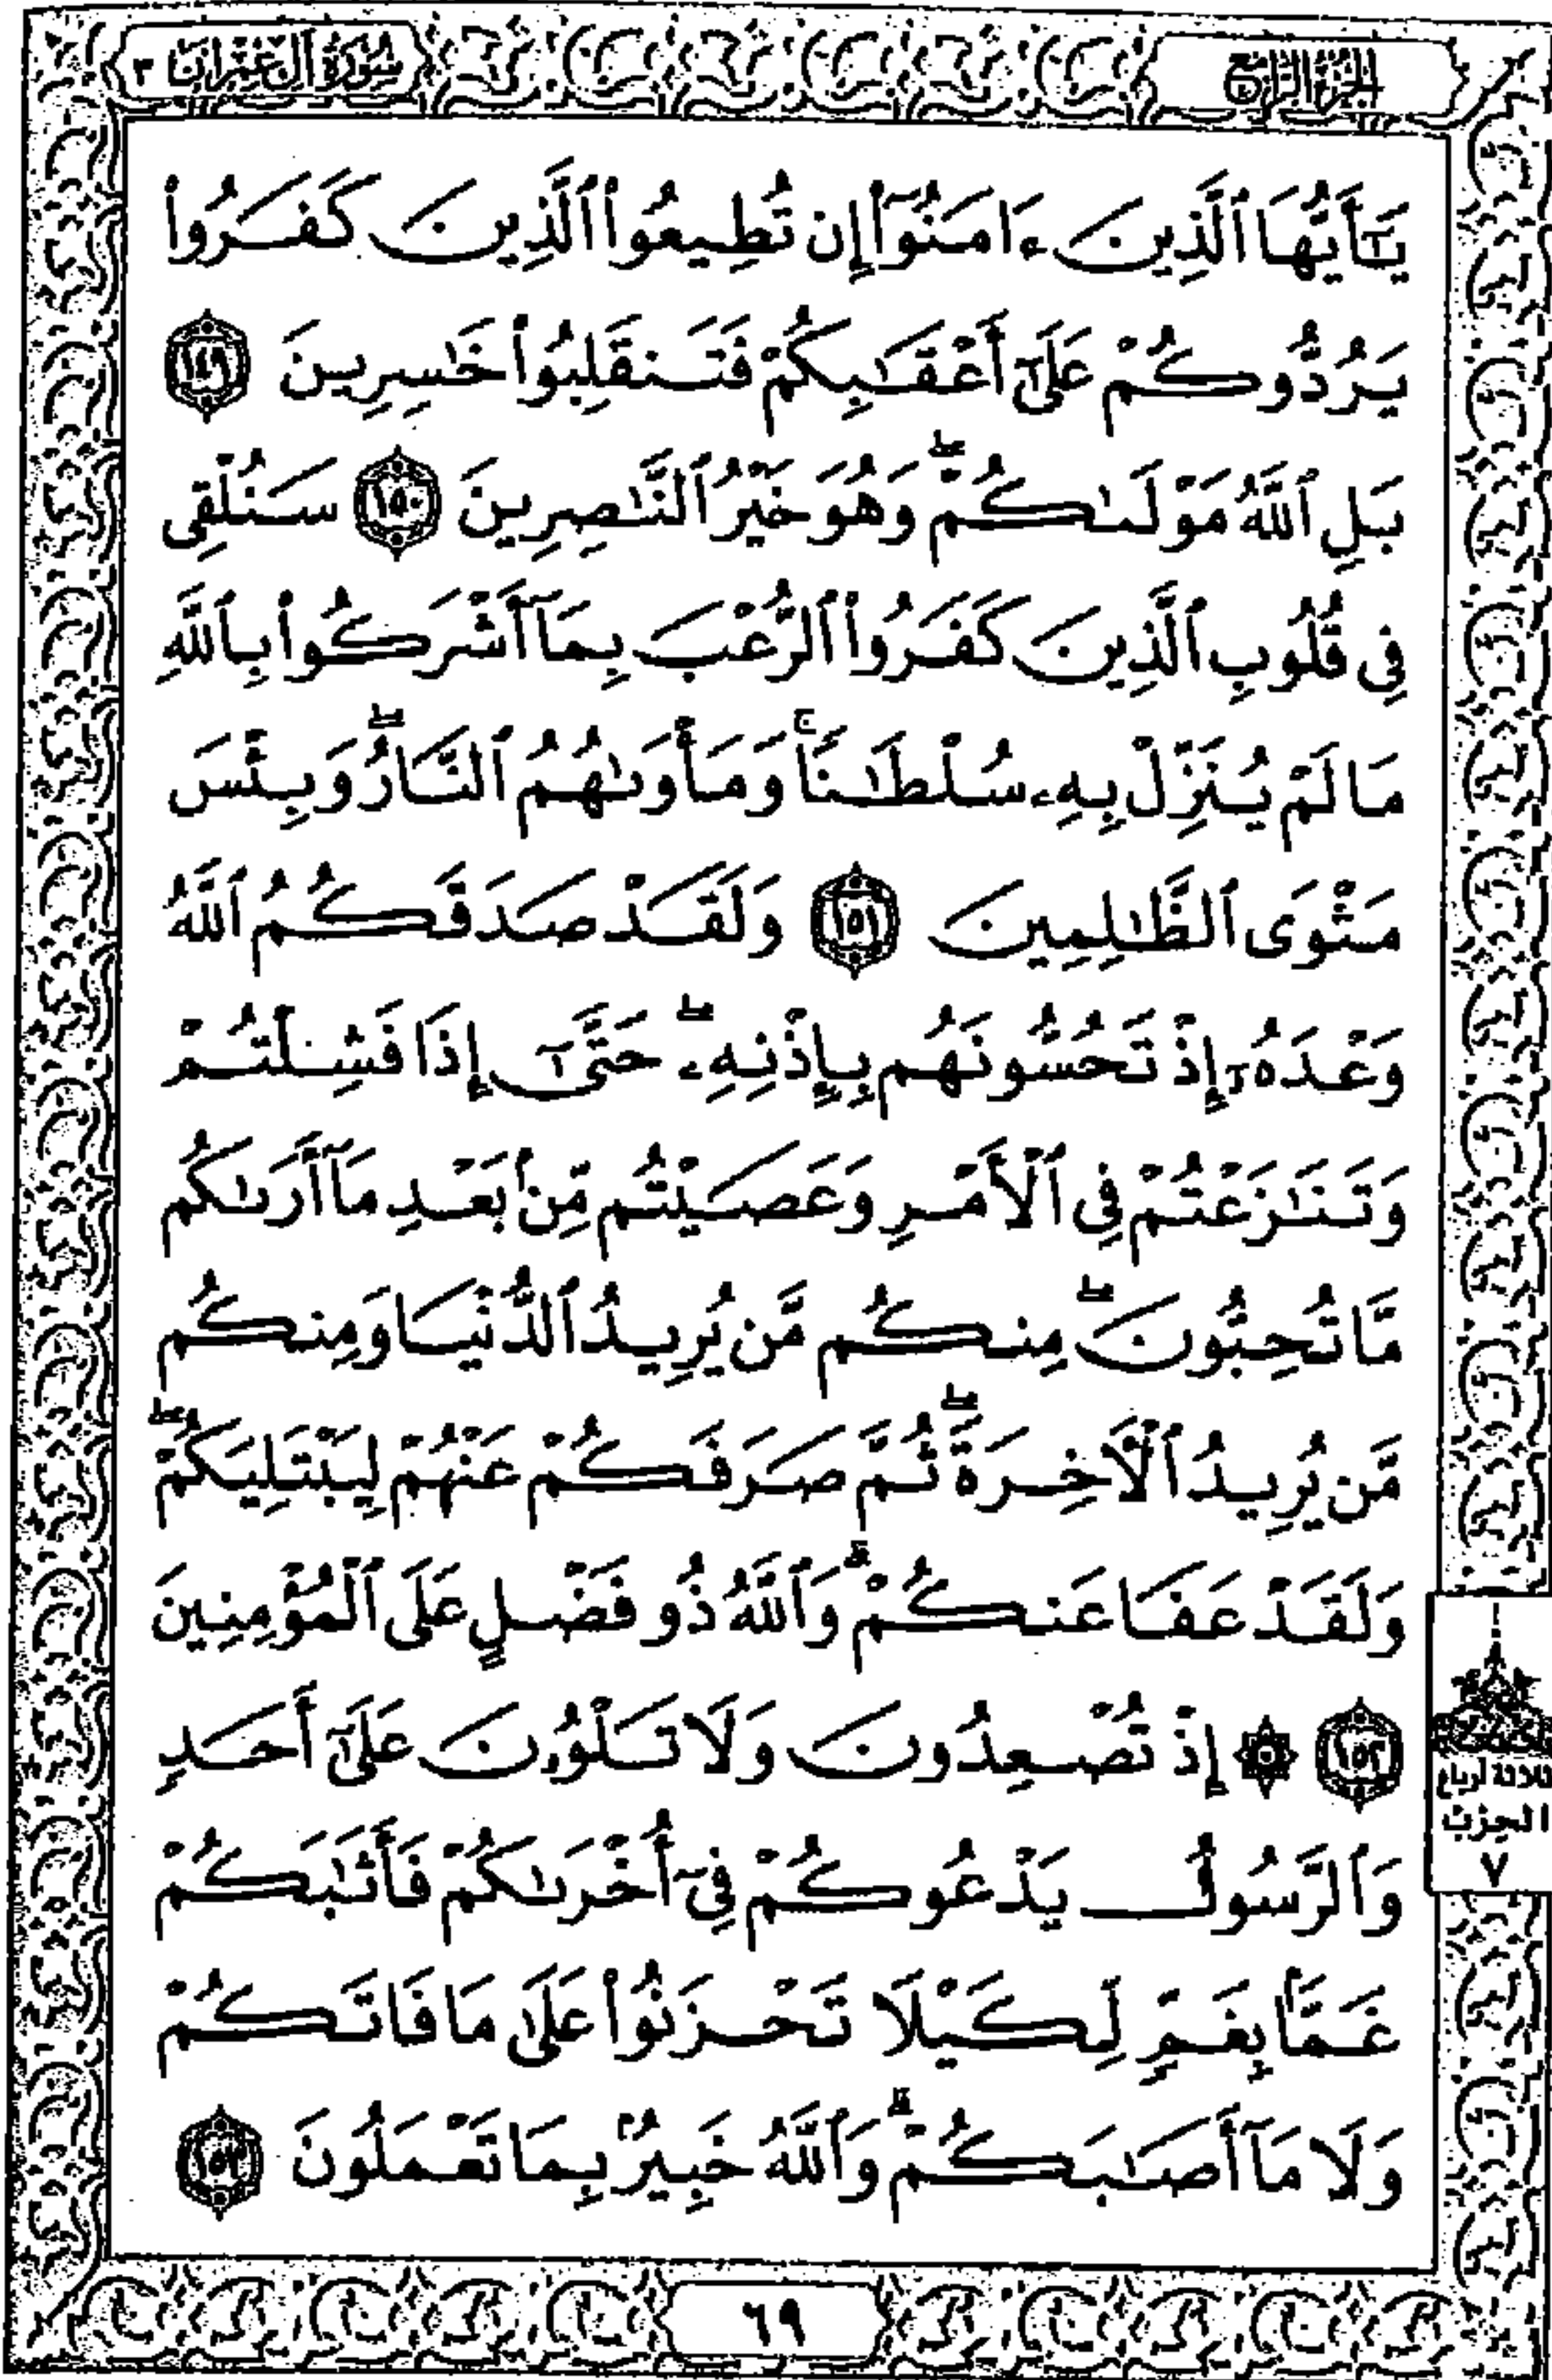 سُورَةُ آلِ عِمْرَانَ ٣
الجُزْءُ الرَّابِعُ
يَـٰٓأَيُّهَا ٱلَّذِينَ ءَامَنُوٓا۟ إِن تُطِيعُوا۟ ٱلَّذِينَ كَفَرُوا۟
يَرُدُّوكُمْ عَلَىٰٓ أَعْقَـٰبِكُمْ فَتَنقَلِبُوا۟ خَـٰسِرِينَ ١٤٩
بَلِ ٱللَّهُ مَوْلَىٰكُمْ ۖ وَهُوَ خَيْرُ ٱلنَّـٰصِرِينَ ١٥٠ سَنُلْقِى
فِى قُلُوبِ ٱلَّذِينَ كَفَرُوا۟ ٱلرُّعْبَ بِمَآ أَشْرَكُوا۟ بِٱللَّهِ
مَا لَمْ يُنَزِّلْ بِهِۦ سُلْطَـٰنًا ۚ وَمَأْوَىٰهُمُ ٱلنَّارُ ۖ وَبِئْسَ
مَثْوَى ٱلظَّـٰلِمِينَ ١٥١ وَلَقَدْ صَدَقَكُمُ ٱللَّهُ
وَعْدَهُۥٓ إِذْ تَحُسُّونَهُم بِإِذْنِهِۦ ۖ حَتَّىٰٓ إِذَا فَشِلْتُمْ
وَتَنَـٰزَعْتُمْ فِى ٱلْأَمْرِ وَعَصَيْتُم مِّنۢ بَعْدِ مَآ أَرَىٰكُم
مَّا تُحِبُّونَ ۚ مِنكُم مَّن يُرِيدُ ٱلدُّنْيَا وَمِنكُم
مَّن يُرِيدُ ٱلْـَٔاخِرَةَ ۚ ثُمَّ صَرَفَكُمْ عَنْهُمْ لِيَبْتَلِيَكُمْ ۖ
وَلَقَدْ عَفَا عَنكُمْ ۗ وَٱللَّهُ ذُو فَضْلٍ عَلَى ٱلْمُؤْمِنِينَ
١٥٢ ۞ إِذْ تُصْعِدُونَ وَلَا تَلْوُۥنَ عَلَىٰٓ أَحَدٍ
وَٱلرَّسُولُ يَدْعُوكُمْ فِىٓ أُخْرَىٰكُمْ فَأَثَـٰبَكُمْ
غَمًّۢا بِغَمٍّ لِّكَيْلَا تَحْزَنُوا۟ عَلَىٰ مَا فَاتَكُمْ
وَلَا مَآ أَصَـٰبَكُمْ ۗ وَٱللَّهُ خَبِيرٌۢ بِمَا تَعْمَلُونَ ١٥٣
ثلاثة أرباع
الحزب
٧
٦٩